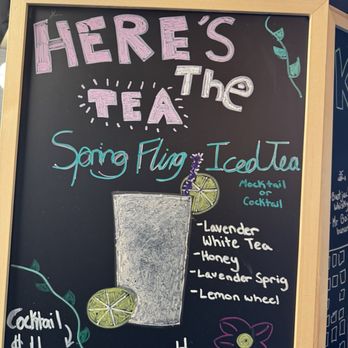 HERE'S
The
TEA
Spring Fling Iced Tea
Mocktail
or
Cocktail
-Lavender
White Tea
-Honey
-Lavender Sprig
-Lemon wheel
Cocktail